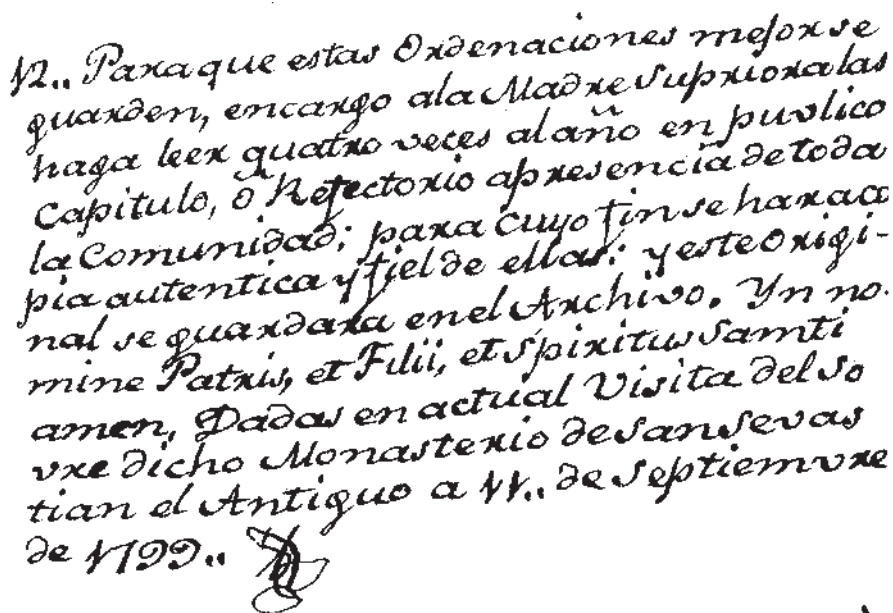 12.. Para que estas Ordenaciones mejor se
guarden, encargo ala Madre Supriora las
haga leer quatro veces al año en puvlico
Capitulo, o Refectorio apresencia de toda
la Comunidad; para cuyo fin se hara co
pia autentica y fiel de ellas: y este Origi-
nal se guardara en el Archivo. Yn no-
mine Patris, et Filii, et Spiritus Samti
amen. Dadas en actual Visita del so
vre dicho Monasterio de San Sevas
tian el Antiguo a 11.. de Septiemvre
de 1799..